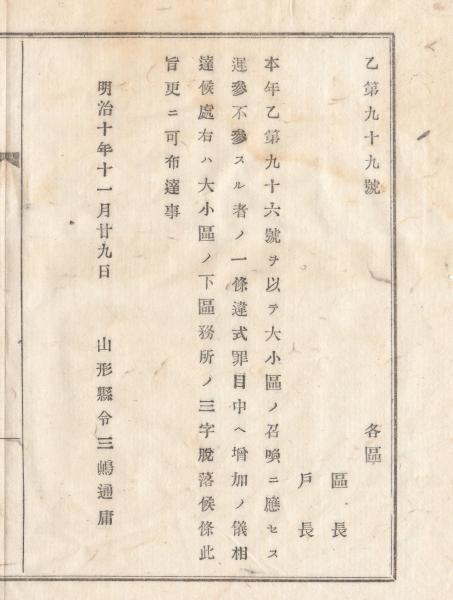 乙第九十九號
各區
區長
戶長
本年乙第九十六號ヲ以テ大小區ノ召喚ニ應セス
遲參不參スル者ノ一條違式罪目中ヘ增加ノ儀相
達候處右ハ大小區ノ下區務所ノ三字脫落候條此
旨更ニ可布達事
明治十年十一月廿九日
山形縣令三嶋通庸